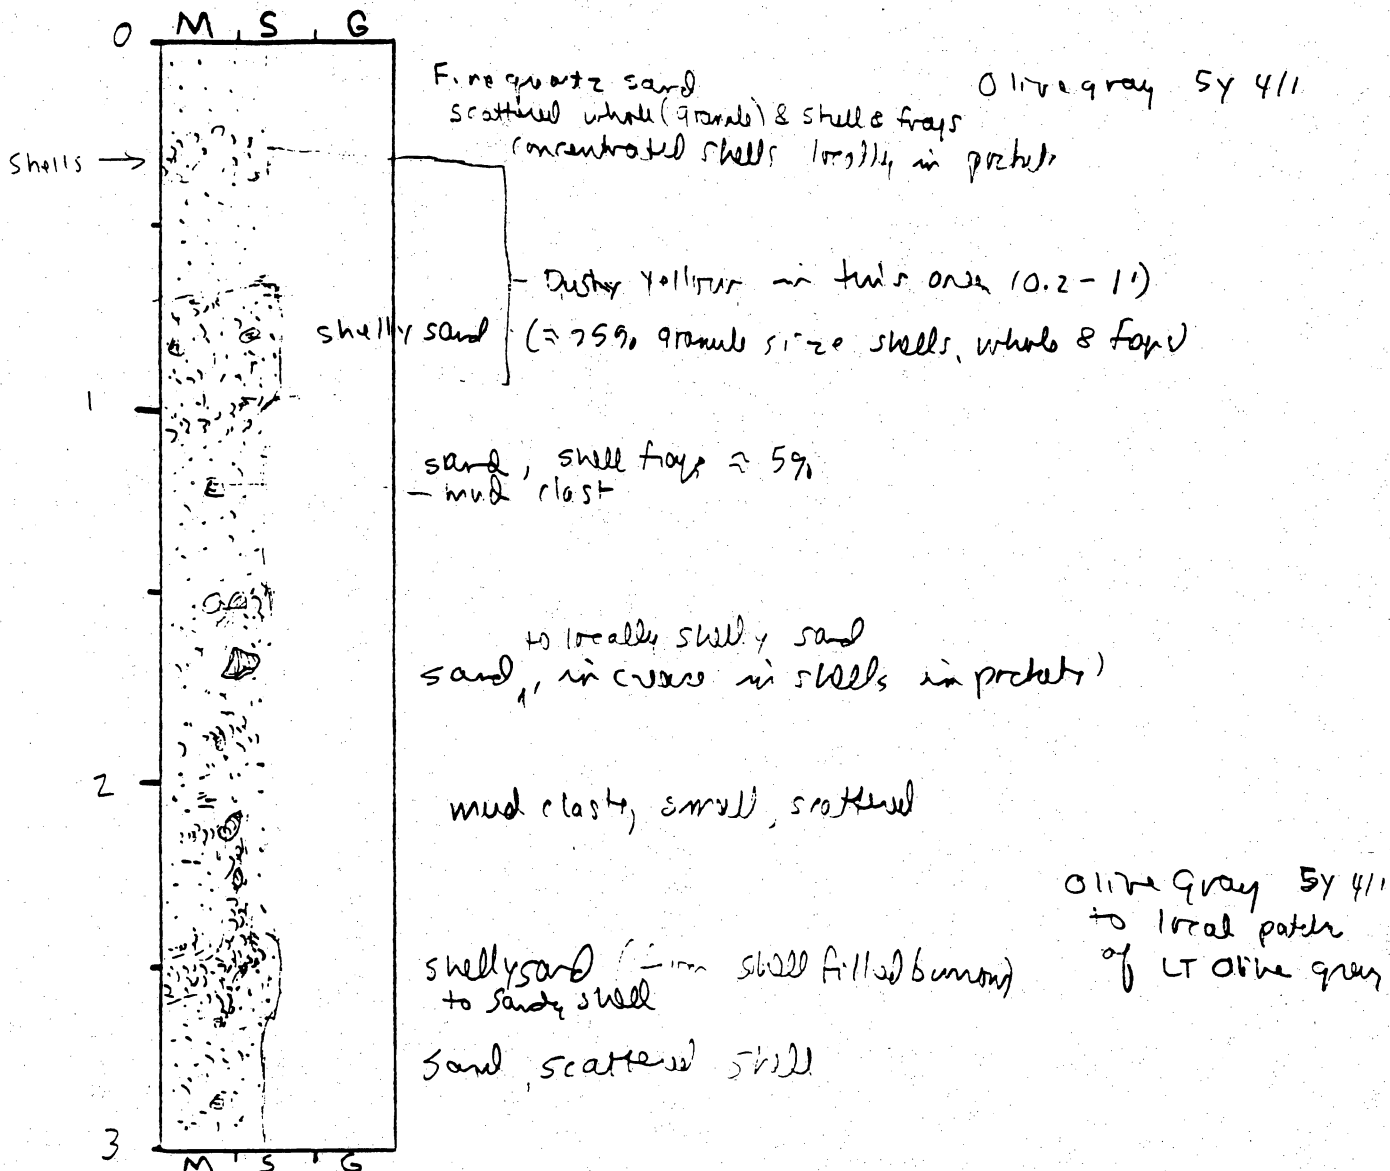 0 M S G
Fine quartz sand
Olive gray 5Y 4/1
scattered whole (granule) & shell & frags
concentrated shells locally in pockets
shells →
- Dusky Yellow in this area (0.2 - 1')
shelly sand (≈ 25% granule size shells, whole & frags)
1
sand, shell frags ≈ 5%
- mud clast
to locally shelly sand
sand, increase in shells in pockets)
2
mud clasts, small, scattered
Olive Gray 5Y 4/1
to local patches
of LT Olive gray
shelly sand shell filled burrow)
to sandy shell
sand, scattered shell
3
M S G